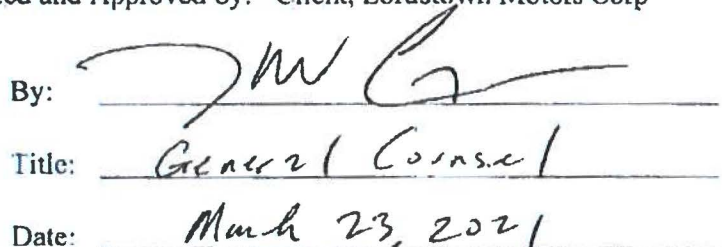 and Approved by: Client, Lordstown Motors Corp
By:
Title: General Counsel
Date: March 23, 2021